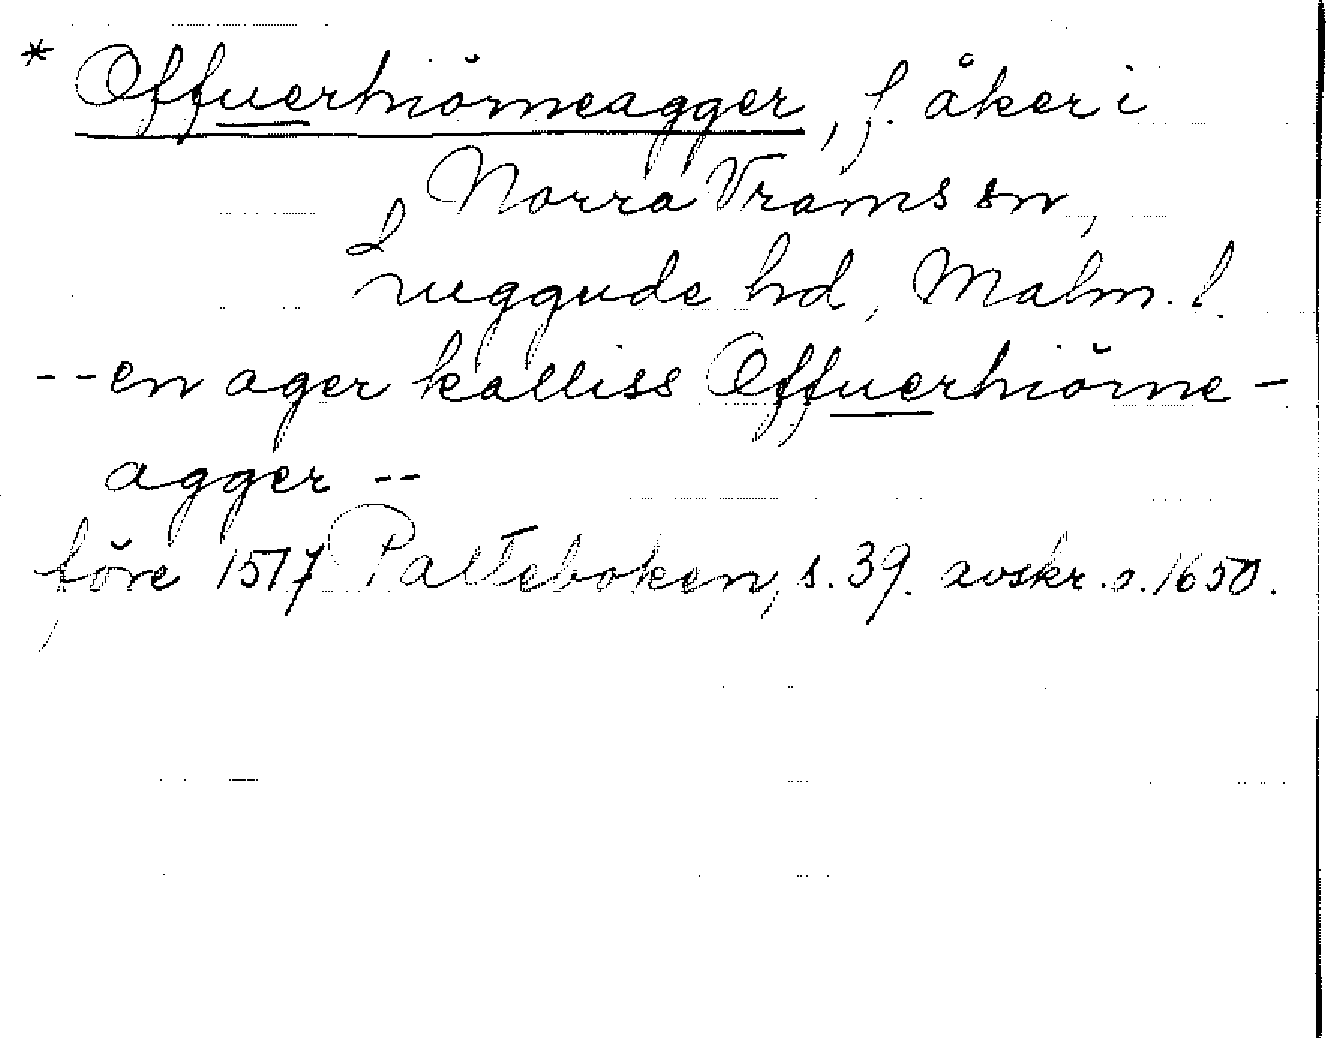 * Offuerhiörneagger, f. åker i
Norra Vrams sn,
Luggude hd, Malm. l.
--en ager kalliss Offuerhiörne-
agger --
före 1517 Palteboken, s. 39. avskr. o. 1650.